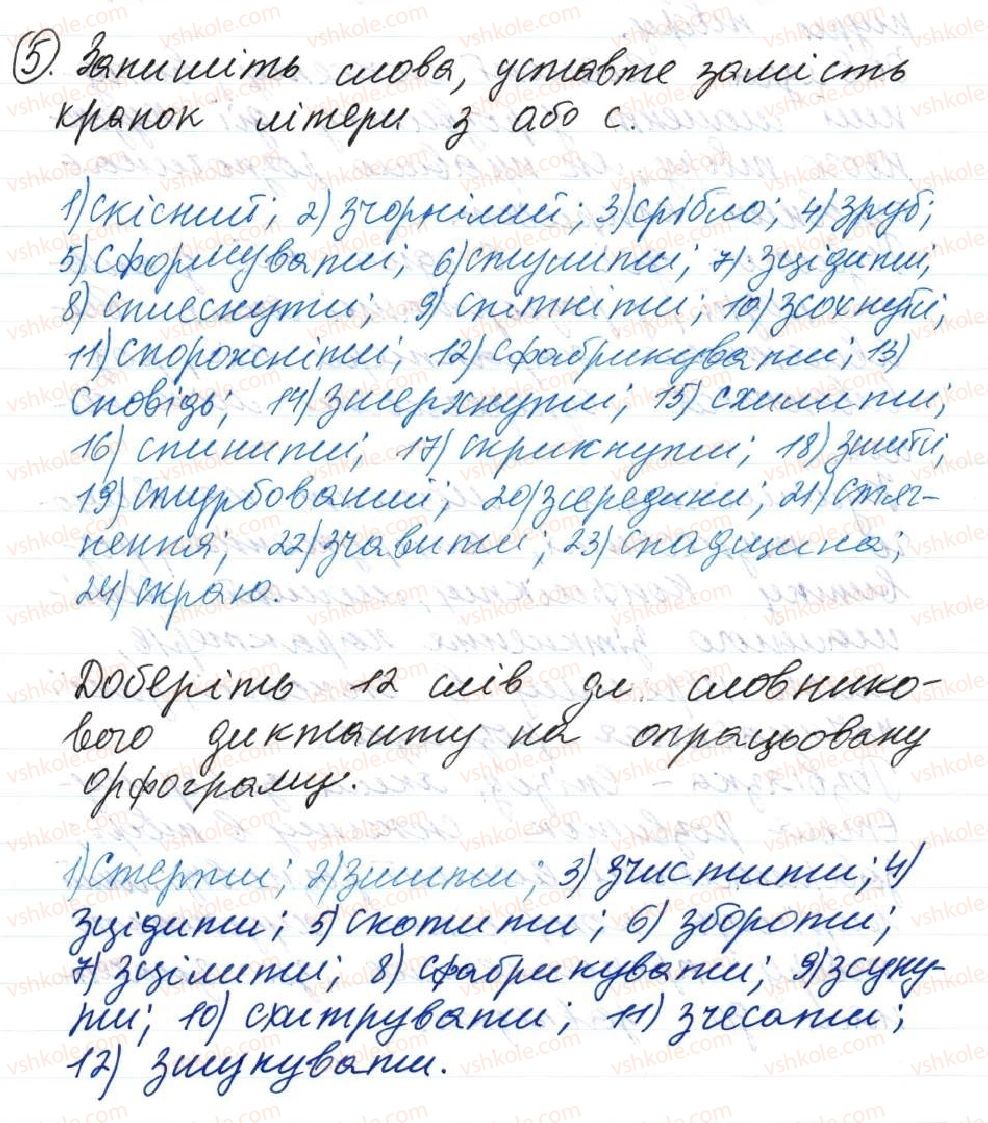 5. Запишіть слова, уставте замість
крапок літери з або с.
1) скісний; 2) зчорнілий; 3) срібло; 4) зруб;
5) сформувати; 6) стулити; 7) зцідити;
8) сплеснути; 9) спітніти; 10) зсохнути;
11) спорожніти; 12) сфабрикувати; 13)
сповідь; 14) змерхнути; 15) схилити;
16) спинити; 17) скрикнути; 18) зшити;
19) стурбований; 20) зсередини; 21) стяг-
нення; 22) зчавити; 23) спадщина;
24) скраю.
Доберіть 12 слів дл словнико-
вого диктанту на опрацьовану
орфограму.
1) Стерти; 2) зшити; 3) зчистити; 4)
зцідити; 5) скотити; 6) збороти;
7) зцілити; 8) сфабрикувати; 9) зсуну-
ти; 10) схитрувати; 11) зчесати;
12)